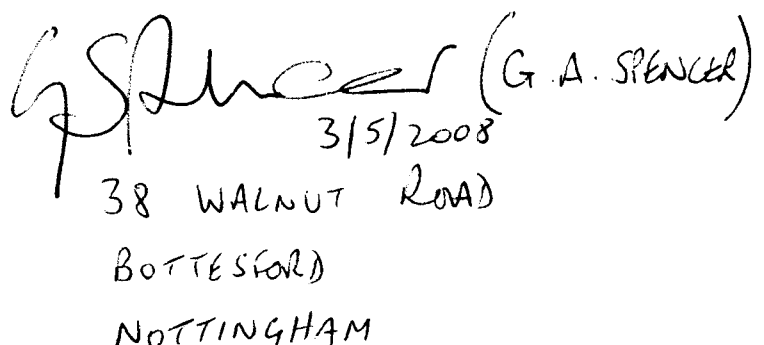 GSpencer (G. A. SPENCER)
3/5/2008
38 WALNUT ROAD
BOTTESFORD
NOTTINGHAM